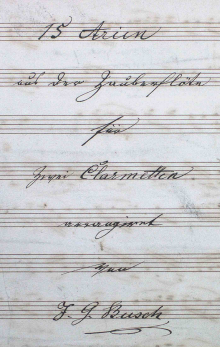 15 Arien
aus der Zauberflöte
für
zwei Clarinetten
arrangirt
von
J. G. Busch